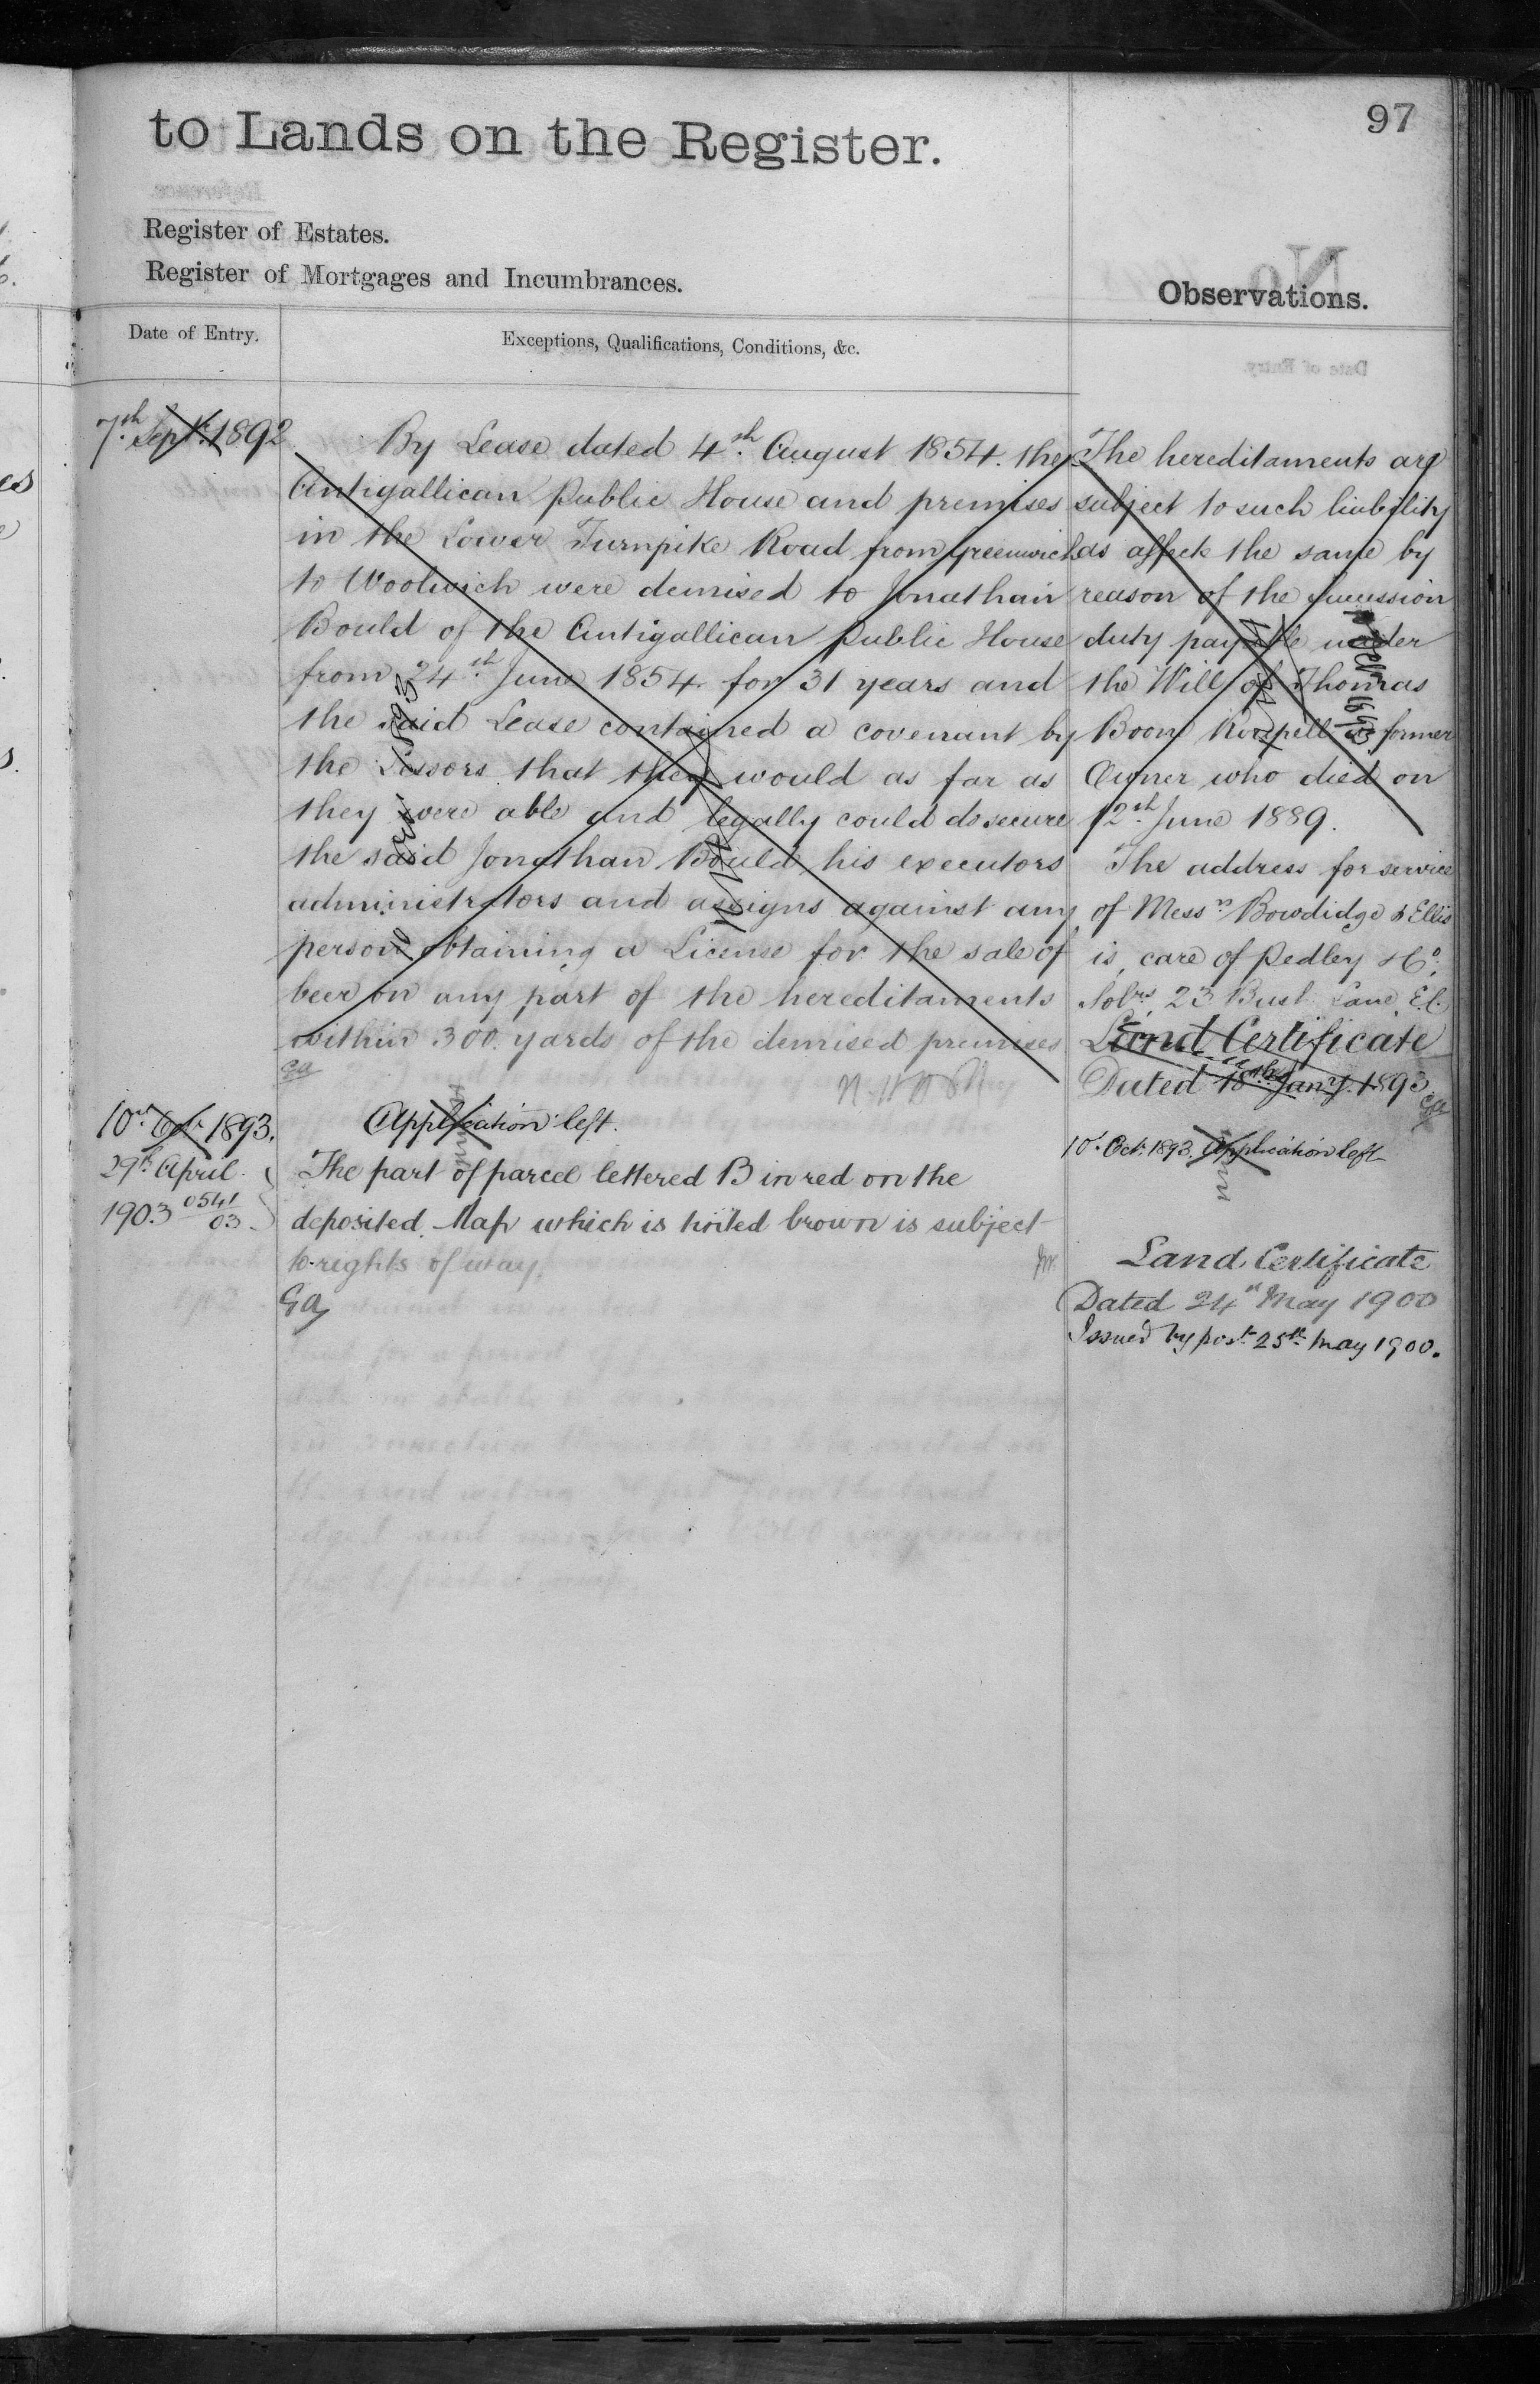 97
to Lands on the Register.
Register of Estates.
Register of Mortgages and Incumbrances.
Observations.
Date of Entry.
Exceptions, Qualifications, Conditions, &c.
7th Sept. 1892
By Lease dated 4th August 1854. the
Antigallican Public House and premises
in the Lower Turnpike Road from Greenwich
to Woolwich were demised to Jonathan
Bould of the Antigallican Public House
from 24th June 1854 for 31 years and
the said Lease contained a covenant by
the Lessors that they would as far as
they were able and legally could do secure
the said Jonathan Bould his executors
administrators and assigns against any
person obtaining a License for the sale of
beer on any part of the hereditaments
within 300 yards of the demised premises
Ga
10th Oct. 1893.
Application left.
29th April
1903 0541/03
The part of parcel lettered B in red on the
deposited Map which is tinted brown is subject
to rights of way.
Ga
The hereditaments are
subject to such liability
as affects the same by
reason of the Succession
duty payable under
the Will of Thomas
Boon Roupell a former
Owner who died on
12th June 1889.
The address for service
of Messrs Bowdidge & Ellis
is, care of Pedley & Co.
Solrs, 23 Bush Lane, E.C.
Land Certificate
Dated 18th Jany. 1893
Ga
10th Oct. 1893. Application left
Land Certificate
Dated 24th May 1900
Issued by post 25th May 1900.